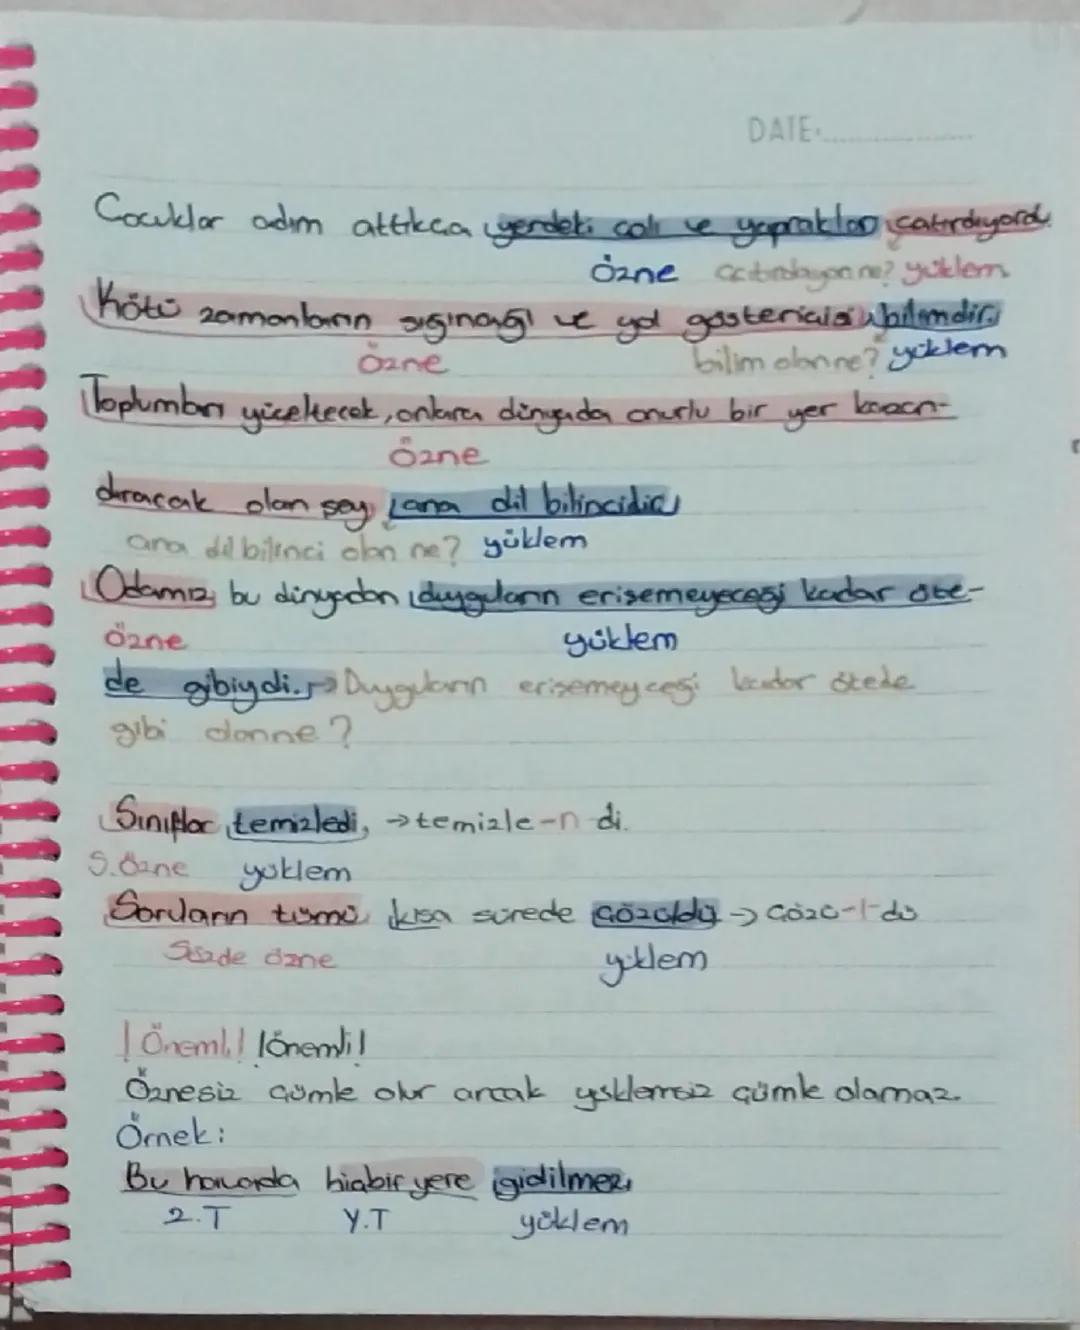 DATE:
Çocuklar adım attıkça yerdeki çalı ve yapraklar çatırdıyordu.
Özne çatırdayan ne? yüklem
Kötü zamanların sığınağı ve yol göstericisi bilimdir.
Özne bilim olan ne? yüklem
Toplumları yüceltecek, onlara dünyada onurlu bir yer kazan-
Özne
dıracak olan şey ana dil bilincidir
ana dil bilinci olan ne? yüklem
Odamız bu dünyadan duyguların erişemeyeceği kadar öte-
Özne yüklem
de gibiydi. → Duyguların erişemeyeceği kadar ötede
gibi olan ne?
Sınıflar temizledi, → temizle-n-di.
S.Özne yüklem
Soruların tümü kısa sürede çözüldü → çözü-l-dü
Sözde özne yüklem
! Önemli! !önemli!
Öznesiz cümle olur ancak yüklemsiz cümle olamaz.
Örnek:
Bu havada hiçbir yere gidilmez.
Z.T Y.T yüklem